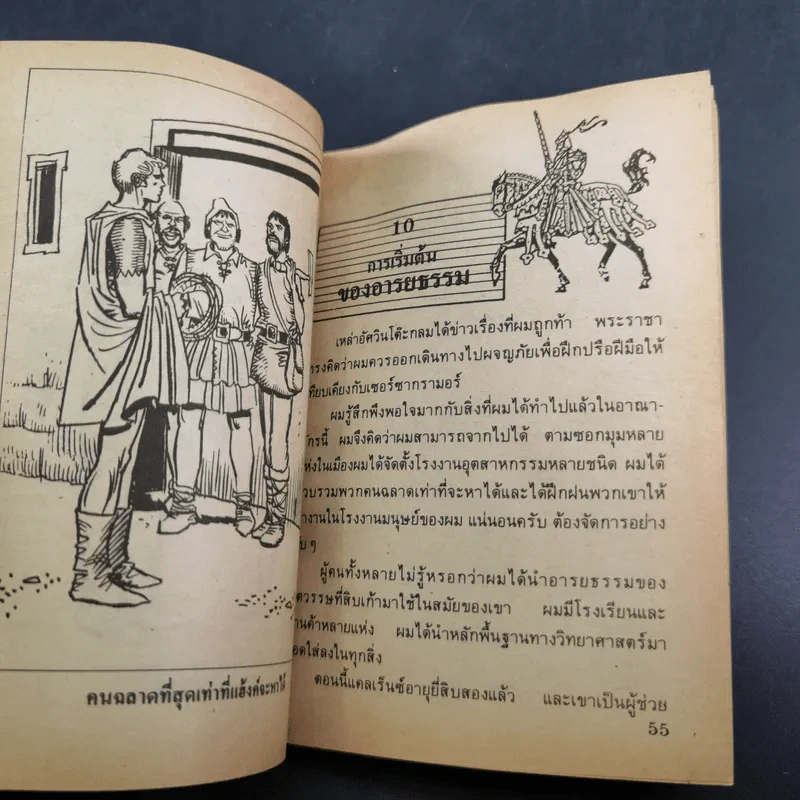 คนฉลาดที่สุดเท่าที่แฮ้งค์จะหาได้
10
การเริ่มต้น
ของอารยธรรม
เหล่าอัศวินโต๊ะกลมได้ข่าวเรื่องที่ผมถูกท้า พระราชา
ทรงคิดว่าผมควรออกเดินทางไปผจญภัยเพื่อฝึกปรือฝีมือให้
เทียบเคียงกับเซอร์ซากรามอร์
ผมรู้สึกพึงพอใจมากกับสิ่งที่ผมได้ทำไปแล้วในอาณา-
จักรนี้ ผมจึงคิดว่าผมสามารถจากไปได้ ตามซอกมุมหลาย
แห่งในเมืองผมได้จัดตั้งโรงงานอุตสาหกรรมหลายชนิด ผมได้
รวบรวมพวกคนฉลาดเท่าที่จะหาได้และได้ฝึกฝนพวกเขาให้
ทำงานในโรงงานมนุษย์ของผม แน่นอนครับ ต้องจัดการอย่าง
ลับ ๆ
ผู้คนทั้งหลายไม่รู้หรอกว่าผมได้นำอารยธรรมของ
ศตวรรษที่สิบเก้ามาใช้ในสมัยของเขา ผมมีโรงเรียนและ
ร้านค้าหลายแห่ง ผมได้นำหลักพื้นฐานทางวิทยาศาสตร์มา
สอดใส่ลงในทุกสิ่ง
ตอนนี้แคลเร็นซ์อายุยี่สิบสองแล้ว และเขาเป็นผู้ช่วย
55